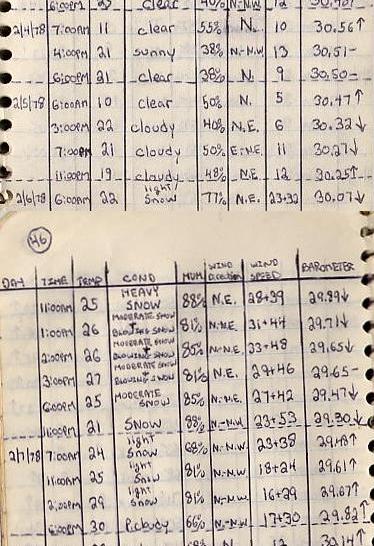 6:00pm 23 clear 40% N.-N.W. 12
2/4/78 7:00am 11 clear 55% N. 10 30.56↑
4:00pm 21 sunny 38% N.-N.W. 13 30.51-
6:00pm 21 clear 38% N 9 30.50-
2/5/78 6:00am 10 clear 50% N. 5 30.47↑
3:00pm 22 cloudy 40% N.E. 6 30.32↓
7:00pm 21 cloudy 50% E.-N.E. 11 30.27↓
11:00pm 19 cloudy 48% N.E 12 30.25↑
2/6/78 6:00am 22 light/ snow 77% N.E. 23+32 30.07↓
46
DAY TIME TEMP COND HUM WIND Direction WIND SPEED BAROMETER
11:00am 25 HEAVY SNOW 88% N.E. 28+39 29.89↓
1:00pm 26 MODERATE SNOW + BLOWING SNOW 81% N.-N.E. 31+44 29.71↓
2:00pm 26 MODERATE SNOW + BLOWING SNOW 85% N.-N.E. 23+48 29.65↓
3:00pm 27 MODERATE SNOW + BLOWING SNOW 81% N.E. 29+46 29.65-
6:00pm 25 MODERATE SNOW 85% N.-N.E. 27+42 29.47↓
11:00pm 21 SNOW 88% N.-N.W. 23+53 29.30↓
2/7/78 7:00am 24 light snow 68% N.-N.W. 23+38 29.48↑
11:00am 25 light snow 81% N.-N.W 18+24 29.61↑
2:00pm 29 light snow 81% N.-N.W 16+29 29.67↑
6:00pm 30 P.cloudy 66% N.-N.W 17+30 29.82↑
N 12 30.14↑